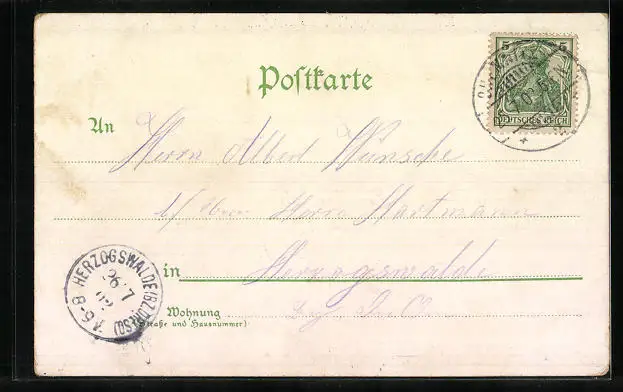 Postkarte
5 5
DEUTSCHES REICH
An
Herrn Albert Wünsche
Herrn Hartmann
in Herzogswalde
Wohnung
(Straße und Hausnummer)
HERZOGSWALDE (BZ. DRESD.)
26 7
02
6-8